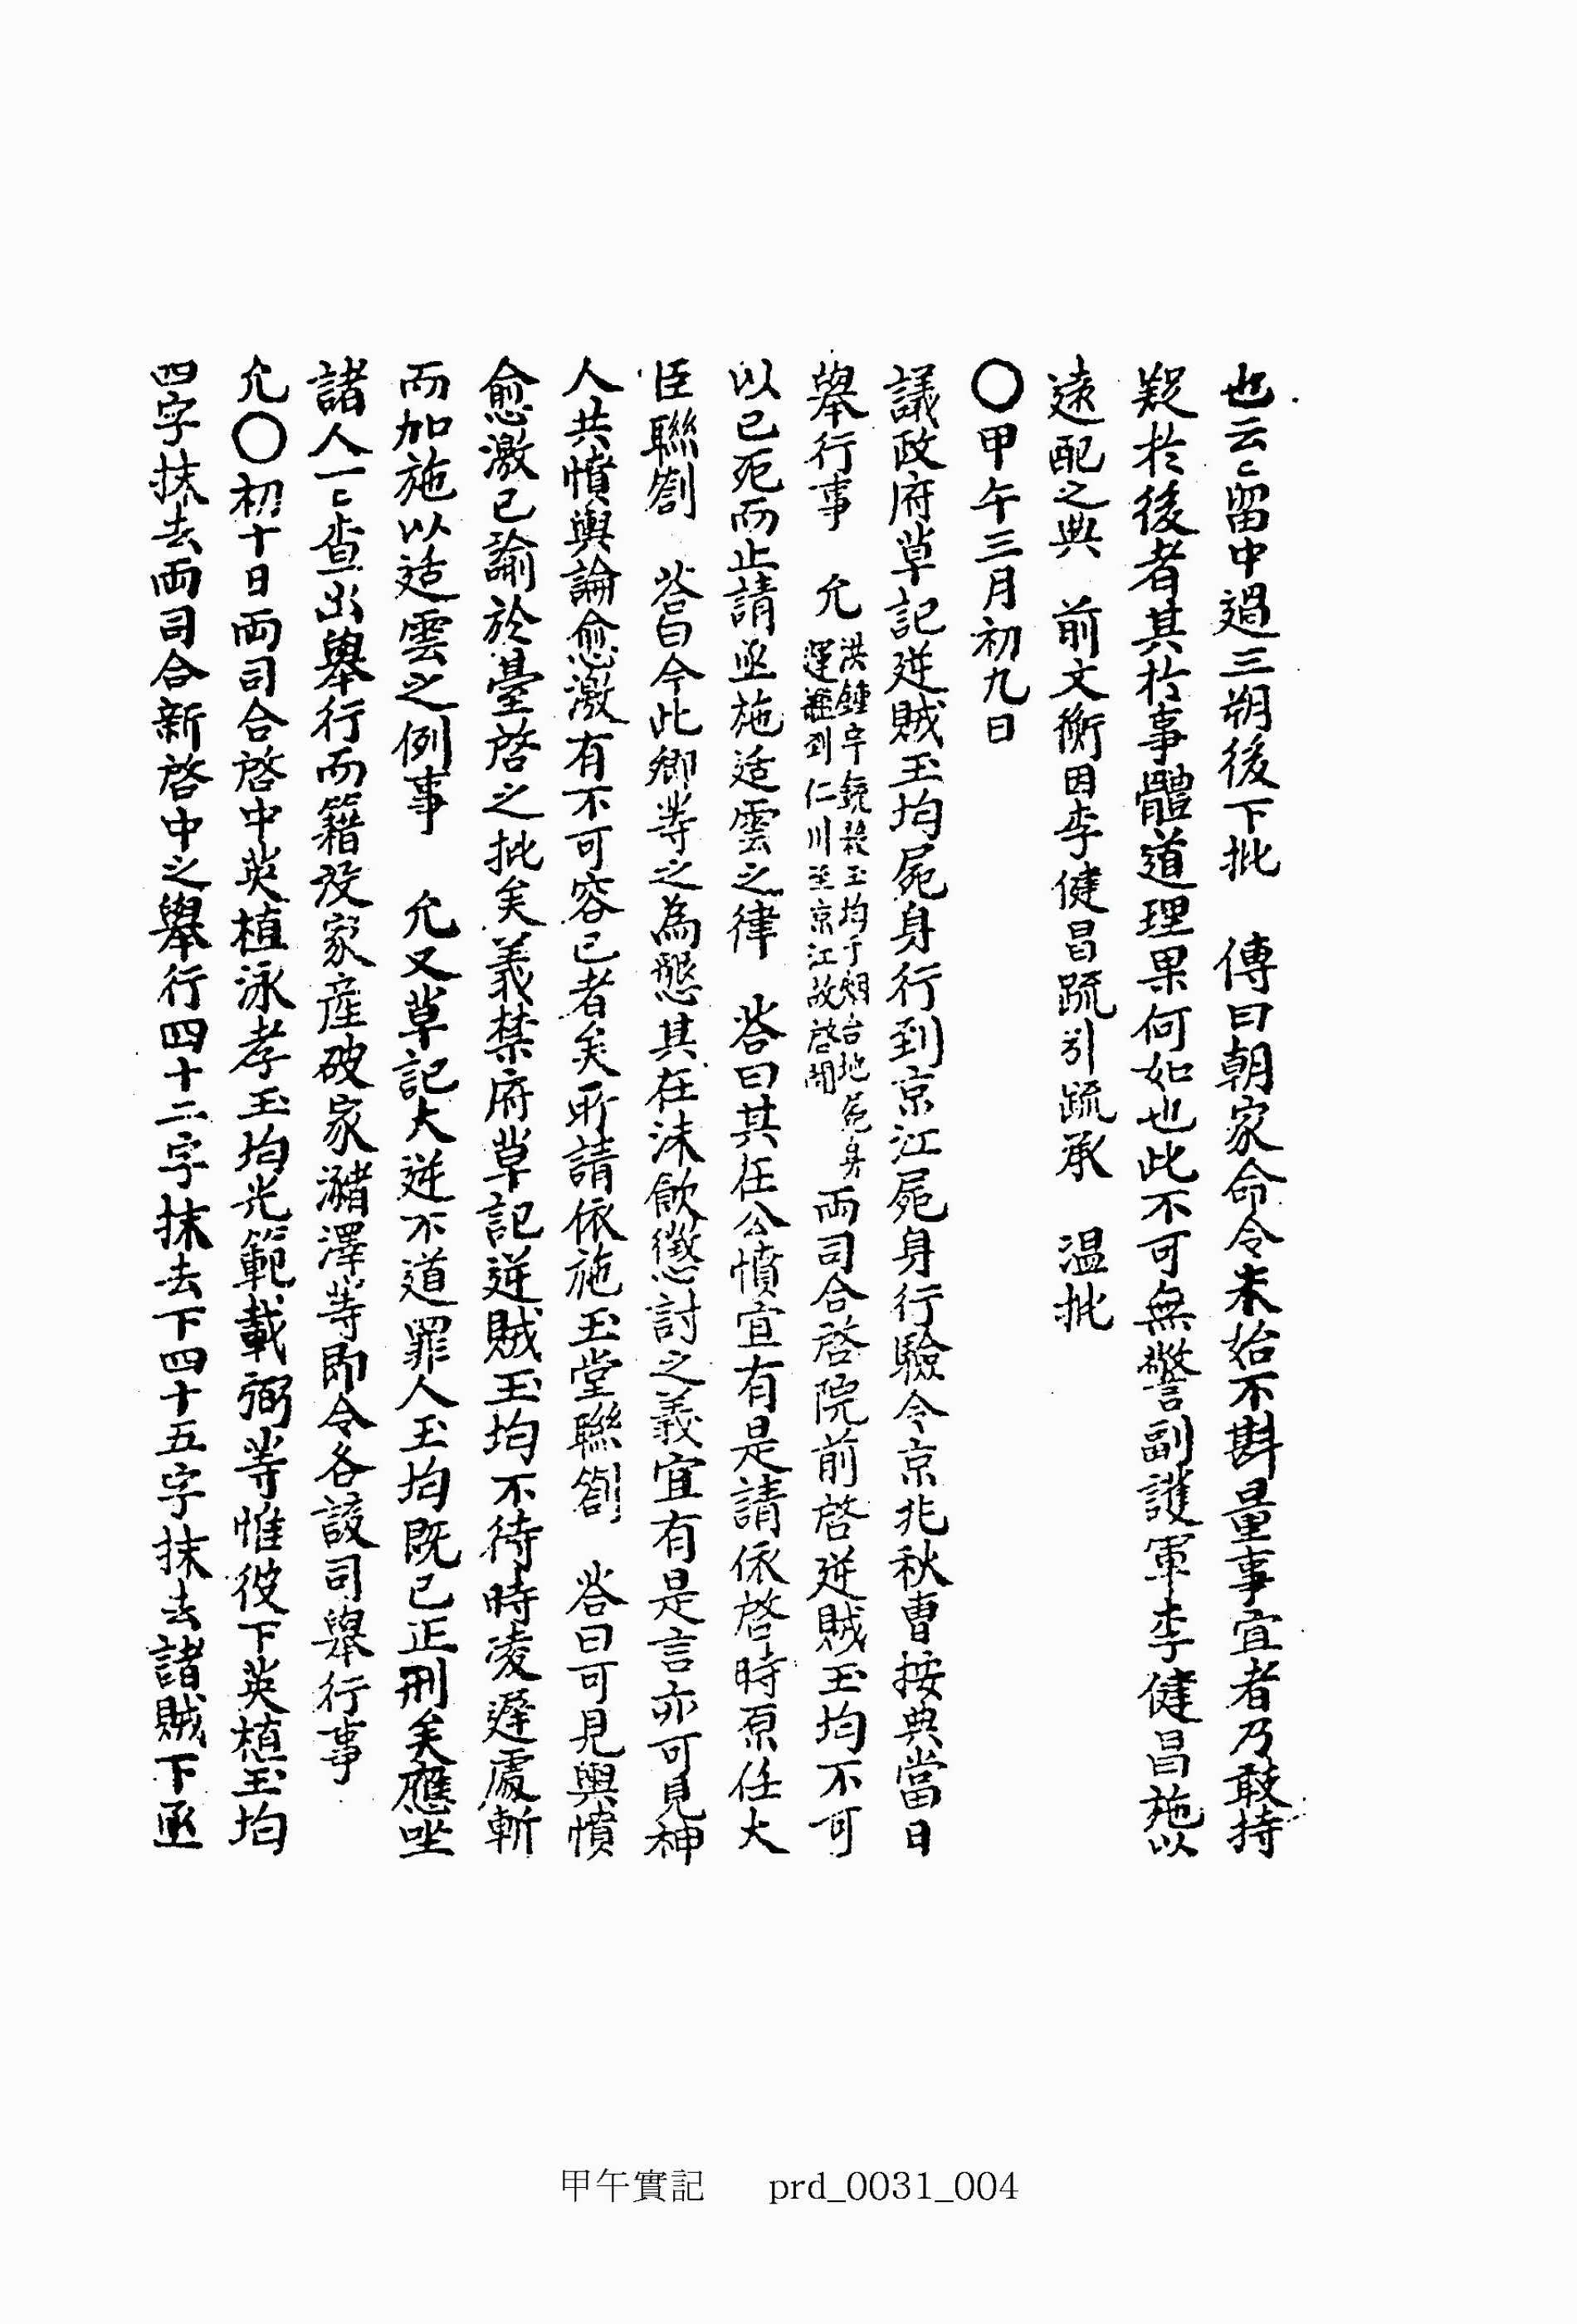 也云〻留中過三朔後下批　傳曰朝家命令未始不斟量事宜者乃敢持
疑於後者其於事體道理果何如也此不可無警副護軍李健昌施以
遠配之典　前文衡因李健昌疏引疏承　温批
〇甲午三月初九日
議政府草記逆賊玉均屍身行到京江屍身行驗令京兆秋曹按典當日
擧行事　允
洪鍾宇銃殺玉均于 台地屍身
運 到仁川至京江故啓聞
兩司合啓院前啓逆賊玉均不可
以已死而止請亟施适雲之律　答曰其在公憤宜有是請依啓時原任大
臣聯劄　答曰今此卿等之為懇其在沫飮懲討之義宜有是言亦可見神
人共憤輿論愈激有不可容已者矣所請依施玉堂聯劄　答曰可見輿憤
愈激已諭於臺啓之批矣義禁府草記逆賊玉均不待時凌遲處斬
而加施以适雲之例事　允又草記大逆不道罪人玉均既已正刑矣應坐
諸人一〻査出擧行而籍沒家産破家瀦澤等即令各該司擧行事
允〇初十日兩司合啓中英植泳孝玉均光範載弼等惟彼下英植玉均
四字抹去兩司合新啓中之擧行四十二字抹去下四十五字抹去諸賊下亟
甲午實記　prd_0031_004